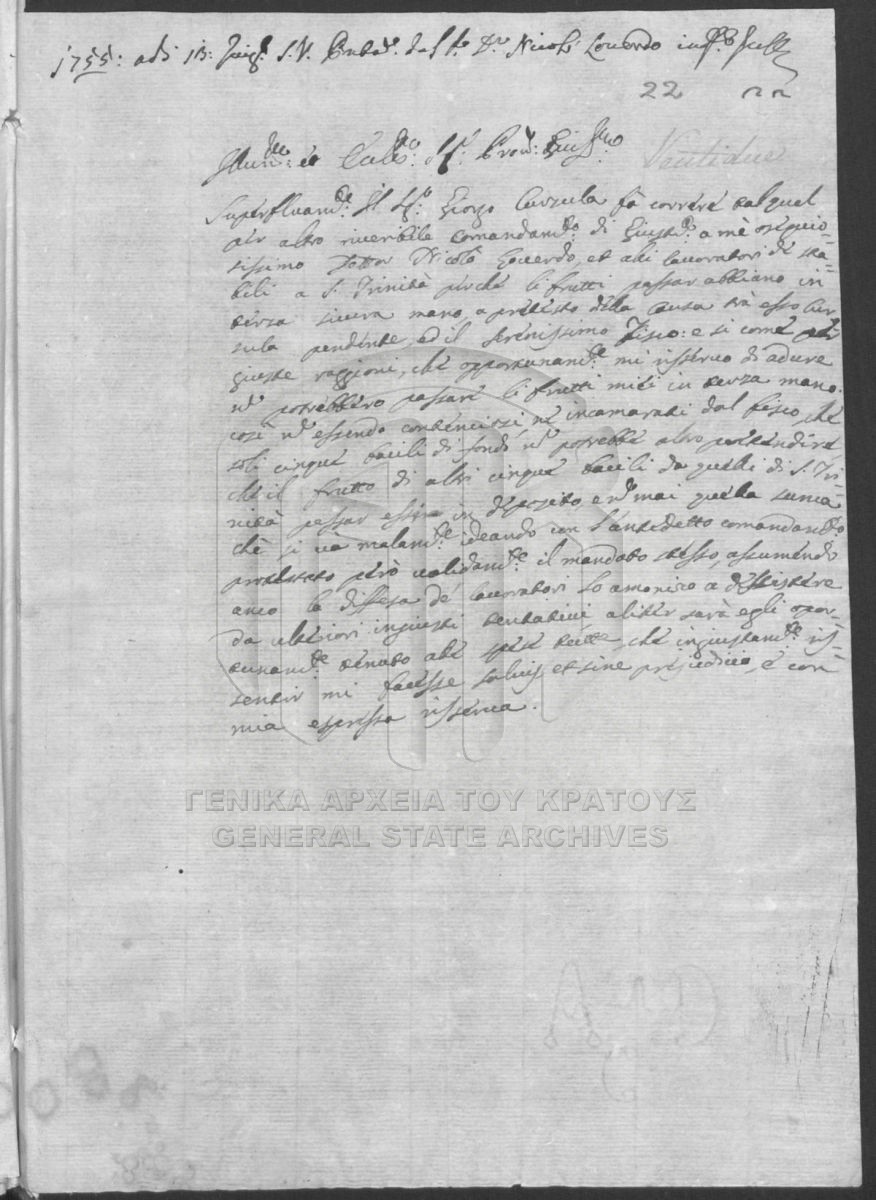 1755: adì 13: Giug.o S.V. Pntà. dal Sr. Dr. Nicolò Loverdo
22 22
Ventidue
Superfluam.te Il Sr. Giorgo Curzula fà correre qualqual
per altro riveribile comandam.to di Giust.a a mè ossequio-
sissimo Dottor Nicolò Loverdo, et alli lavoratori de sta-
bili a S. Trinità perchè li frutti passar abbiano in
terza sicura mano, a pretesto della causa trà esso Cur
zula pendente, ed il Serenissimo Fisco: e si come per
giuste raggioni, che opportunam.te mi risservo di adure
n.n potrebbero passare li frutti miei in terza mano.
così n.n essendo contenciosi, nè incamarati dal fisco, che
soli cinque bacili di fondi n.n potrebbe altro prettendire
che il frutto di altri cinque bacili da quelli di S. Tri-
nità passar essi in deposito, e n.n mai quella summa
che si và malam.te ideando con l'antedetto comandam.to
protestato però validam.te il mandato stesso, assumendo
anco la diffesa de' lavoratori lo amonisco a dessistere
da ulteriori ingiusti tentativi aliter sarà egli opor-
tunam.te tenuto alle spese tutte, che ingiustam.te ris-
sentir mi facesse salvis, et sine prejudicio, e con
mia espressa risserva.
ΓΕΝΙΚΑ ΑΡΧΕΙΑ ΤΟΥ ΚΡΑΤΟΥΣ
GENERAL STATE ARCHIVES